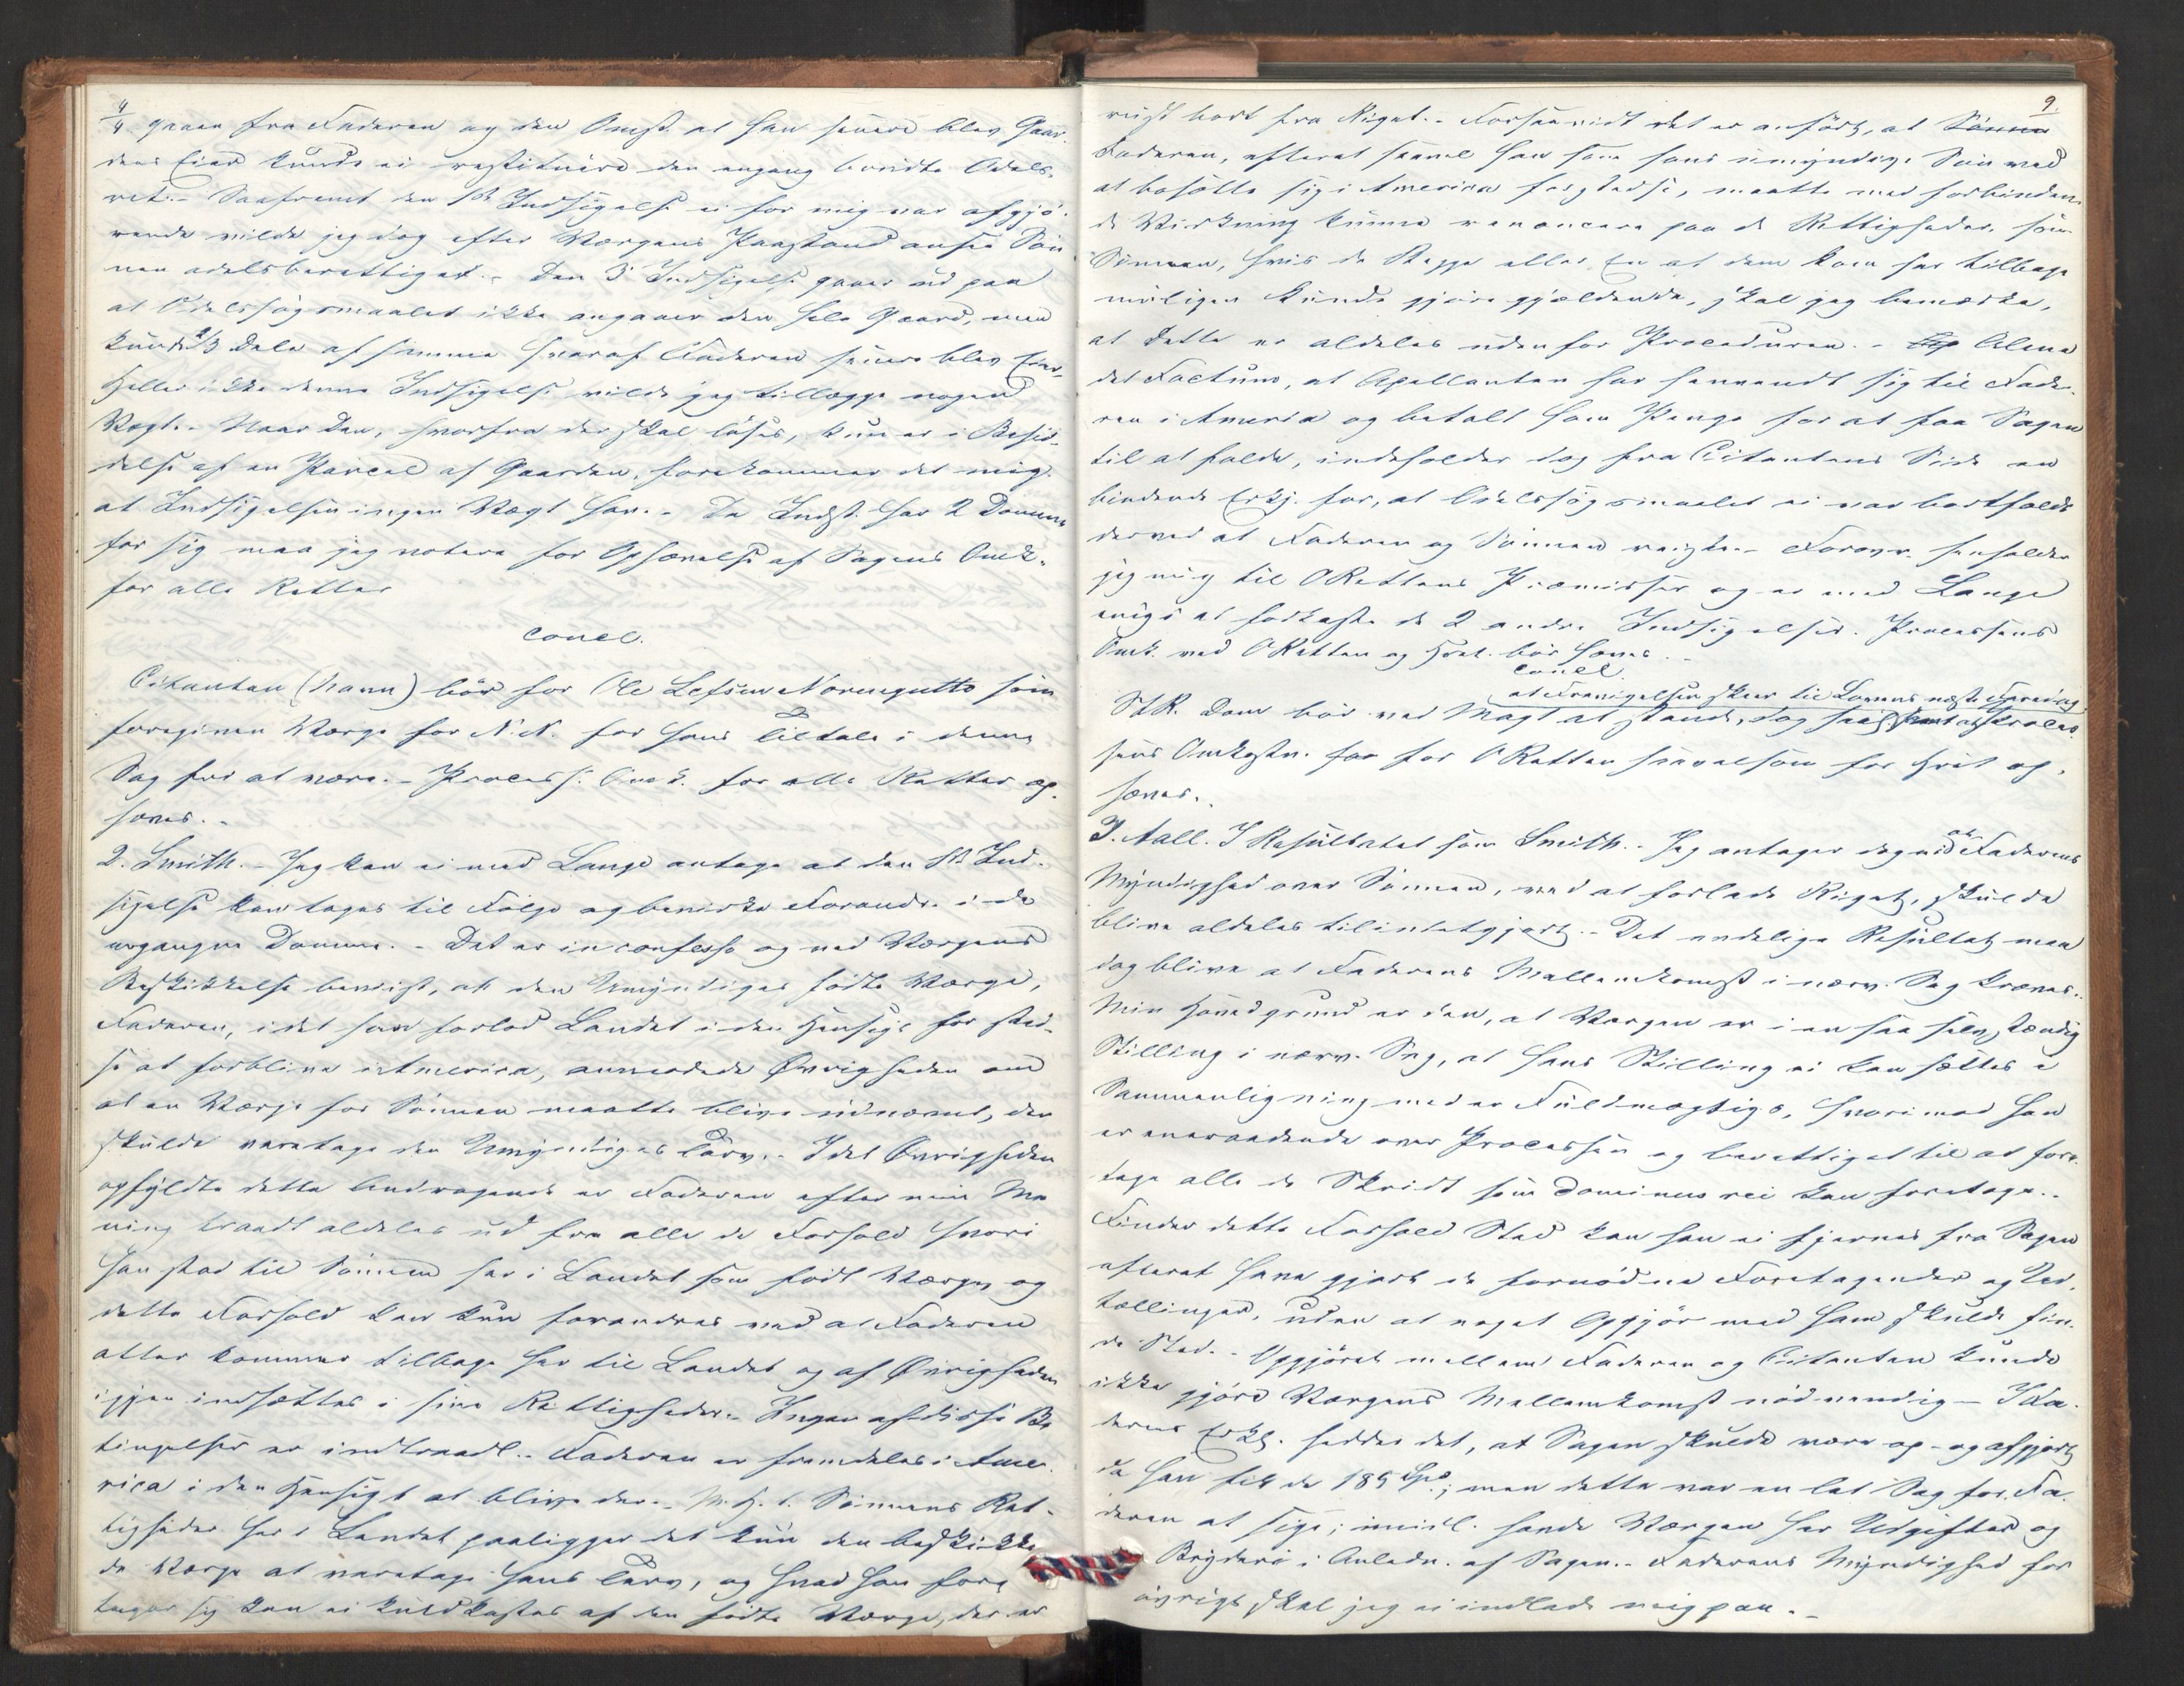 4/4 gaaen fra Faderen og den Omst. at han senere blev Gaar-
dens Eier kunde ei restituere den engang brudte Odels-
ret.- Saafremt den 1ste Indsigelse ei for mig var afgjö-
rende vilde jeg dog efter Værgens Paastand ansee Søn-
nen odelsberettiget.- Den 3die Indsigelse gaaer ud paa
at Odelssögsmaalet ikke angaaer den hele Gaard, men
kun 2/3 Dele af samme hvoraf Faderen senere blev Eier.
Heller ikke denne Indsigelse vilde jeg tillægge nogen
Vægt.- Naar Den, hvorfra der skal löses, kun er i Besid-
delse af en Parcel af Gaarden, forekommer det mig
at Indsigelsen ingen Vægt har.- Da Indst. har 2 Domme
for sig maa jeg votere for Ophævelse af Sagens Omk.
for alle Retter
concl.
Citanten (Navn) bör for Ole Lefsen Norengutto som
foregiven Værge for N.N. for hans Tiltale i denne
Sag fri at være.- Process. Omk. for alle Retter op-
hæves.-
2. Smith.- Jeg kan ei med Lange antage at den 1ste Ind-
sigelse kan tages til Fölge og bevirke Forandr. i de
ergangne Domme.- Det er in confesso og ved Værgens
Beskikkelse bevist, at den Umyndiges födte Værge,
Faderen, idet han forlod Landet i den Hensigt for sted-
se at forblive i America, anmodede Øvrigheden om
at en Værge for Sönnen maatte blive udnævnt, der
skulde varetage den Umyndiges Tarv.- Idet Øvrigheden
opfyldte dette Andragende er Faderen efter min Me-
ning traadt aldeles ud fra alle de Forhold hvori
han stod til Sönnen her i Landet som födt Værge, og
dette Forhold kan kun forandres ved at Faderen
atter kommer tilbage her til Landet og af Øvrigheden
igjen indsættes i sine Rettigheder.- Ingen af disse Be-
tingelser er indtraadt.- Faderen er fremdeles i Ame-
rica i den Hensigt at blive der.- M.H.t. Sönnens Ret-
tigheder her i Landet paaligger det kun den beskikke-
de Værge at varetage hans Tarv, og hvad han fore-
tager sig kan ei kuldkastes af den födte Værge, der er
9.
reist bort fra Riget.- Forsaavidt det er anfört, at Sönnen
Faderen, efterat saavel han som hans umyndige Sön ved
at bosætte sig i America forstedse, maatte med forbinden-
de Virkning kunne renoncere paa de Rettigheder, som
Sönnen, hvis de begge eller En af dem kom her tilbage
muligen kunde gjöre gjældende, skal jeg bemærke,
at dette er aldeles udenfor Proceduren.- Alene
det Factum, at Apellanten har henvendt sig til Fade-
ren i America og betalt ham Penge for at faa Sagen
til at falde, indeholder dog fra Citantens Side en
bindende Erkj. for, at Odelssögsmaalet ei var bortfaldt
derved at Faderen og Sönnen reiste.- Forövr. henholder
jeg mig til ORettens Præmisser og er med Lange
enig i at forkaste de 2 andre Indsigelser. Processens
Omk. ved ORetten og Hret. bör hæves.-
concl.
at Fravigelsen skeer til Lovens næste Faredag
StR. Dom bör ved Magt at stande, dog saal. at Proces-
sens Omkostn. for ORetten saavelsom for Hret op-
hæves.
3. Aall. I Resultatet som Smith.- Jeg antager dog ei at Faderens
Myndighed over Sönnen, ved at forlade Riget, skulde
blive aldeles tilintetgjort.- Det endelige Resultat maa
dog blive at Faderens Mellemkomst i nærv. Sag kræves.-
Min Hovedgrund er den, at Værgen er i en saa selvstændig
Stilling i nærv. Sag, at hans Stilling ei kan sættes i
Sammenligning med en Fuldmægtigs, hvorimod han
er eneraadende over Processen og berettiget til at fore-
tage alle de Skridt som dominus rei kan foretage.-
Finder dette Forhold Sted kan han ei fjernes fra Sagen
efterat have gjort de fornödne Foretagender og Ud-
tællinger, uden at noget Opgjör med ham skulde fin-
de Sted.- Opgjöret mellem Faderen og Citanten kunde
ikke gjöre Værgens Mellemkomst nödvendig - I Fa-
derens Erkl. hedder det, at Sagen skulde være op- og afgjort
da han fik de 185 Spd.; men dette var en let Sag for Fa-
deren at sige; imidl. havde Værgen her Udgifter og
Bryderi i Anledn. af Sagen.- Faderens Myndighed for
övrigt skal jeg ei indlade mig paa.-